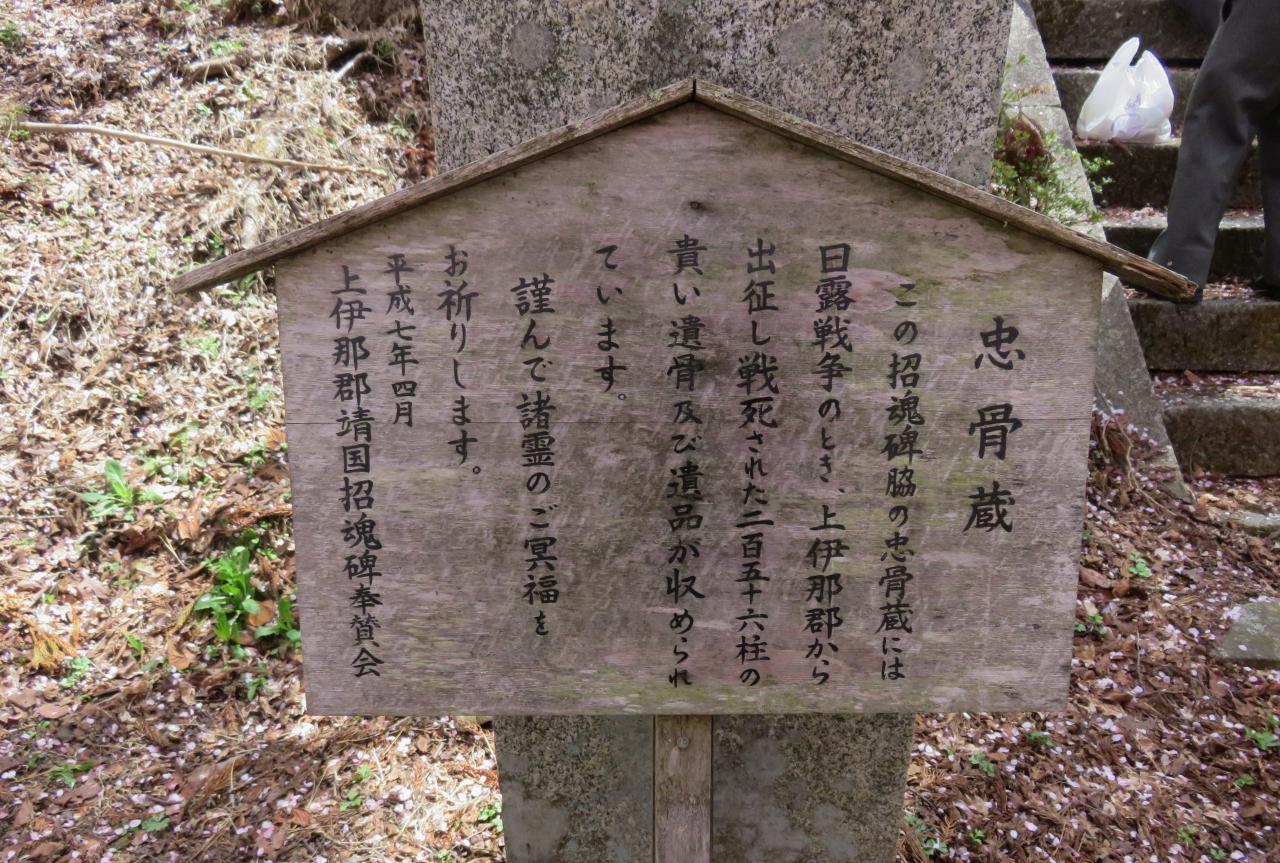 忠骨蔵
この招魂碑脇の忠骨蔵には
日露戦争のとき、上伊那郡から
出征し戦死された二百五十六柱の
貴い遺骨及び遺品が収められ
ています。
謹んで諸霊のご冥福を
お祈りします。
平成七年四月
上伊那郡靖国招魂碑奉賛会